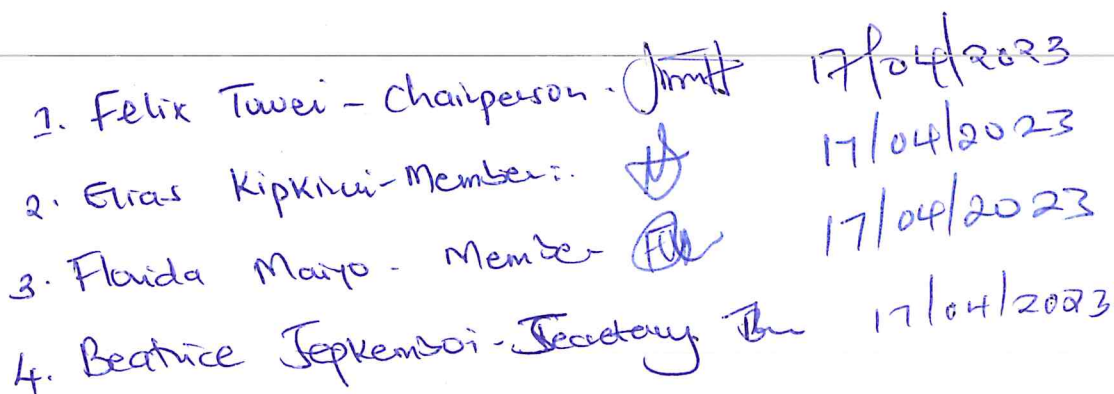 1. Felix Tuwei - Chairperson. 17/04/2023
2. Elias Kipkirui - Member: 17/04/2023
3. Florida Maiyo - Member 17/04/2023
4. Beatrice Jepkemboi - Secretary 17/04/2023